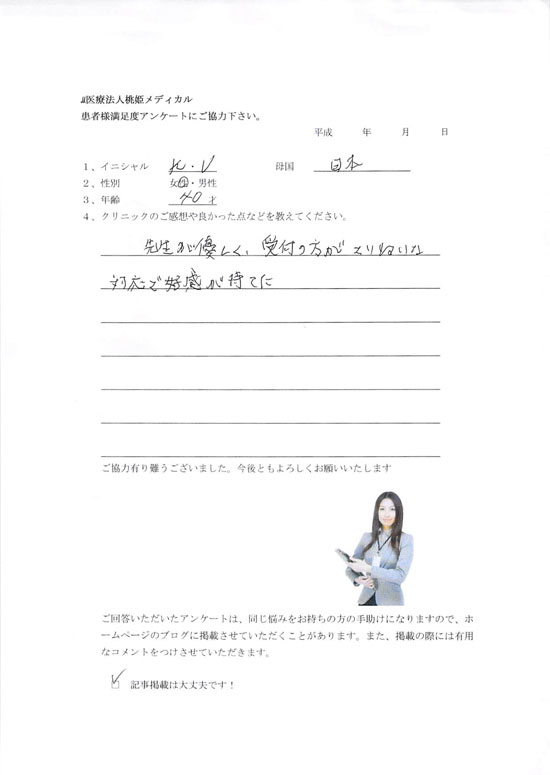 医療法人桃姫メディカル
患者様満足度アンケートにご協力下さい。
平成 年 月 日
1、イニシャル K・V 母国 日本
2、性別 女性・男性
3、年齢 40 才
4、クリニックのご感想や良かった点などを教えてください。
先生が優しく、受付の方がていねいな
対応で好感が持てた
ご協力有り難うございました。今後ともよろしくお願いいたします
ご回答いただいたアンケートは、同じ悩みをお持ちの方の手助けになりますので、ホ
ームページのブログに掲載させていただくことがあります。また、掲載の際には有用
なコメントをつけさせていただきます。
記事掲載は大丈夫です！